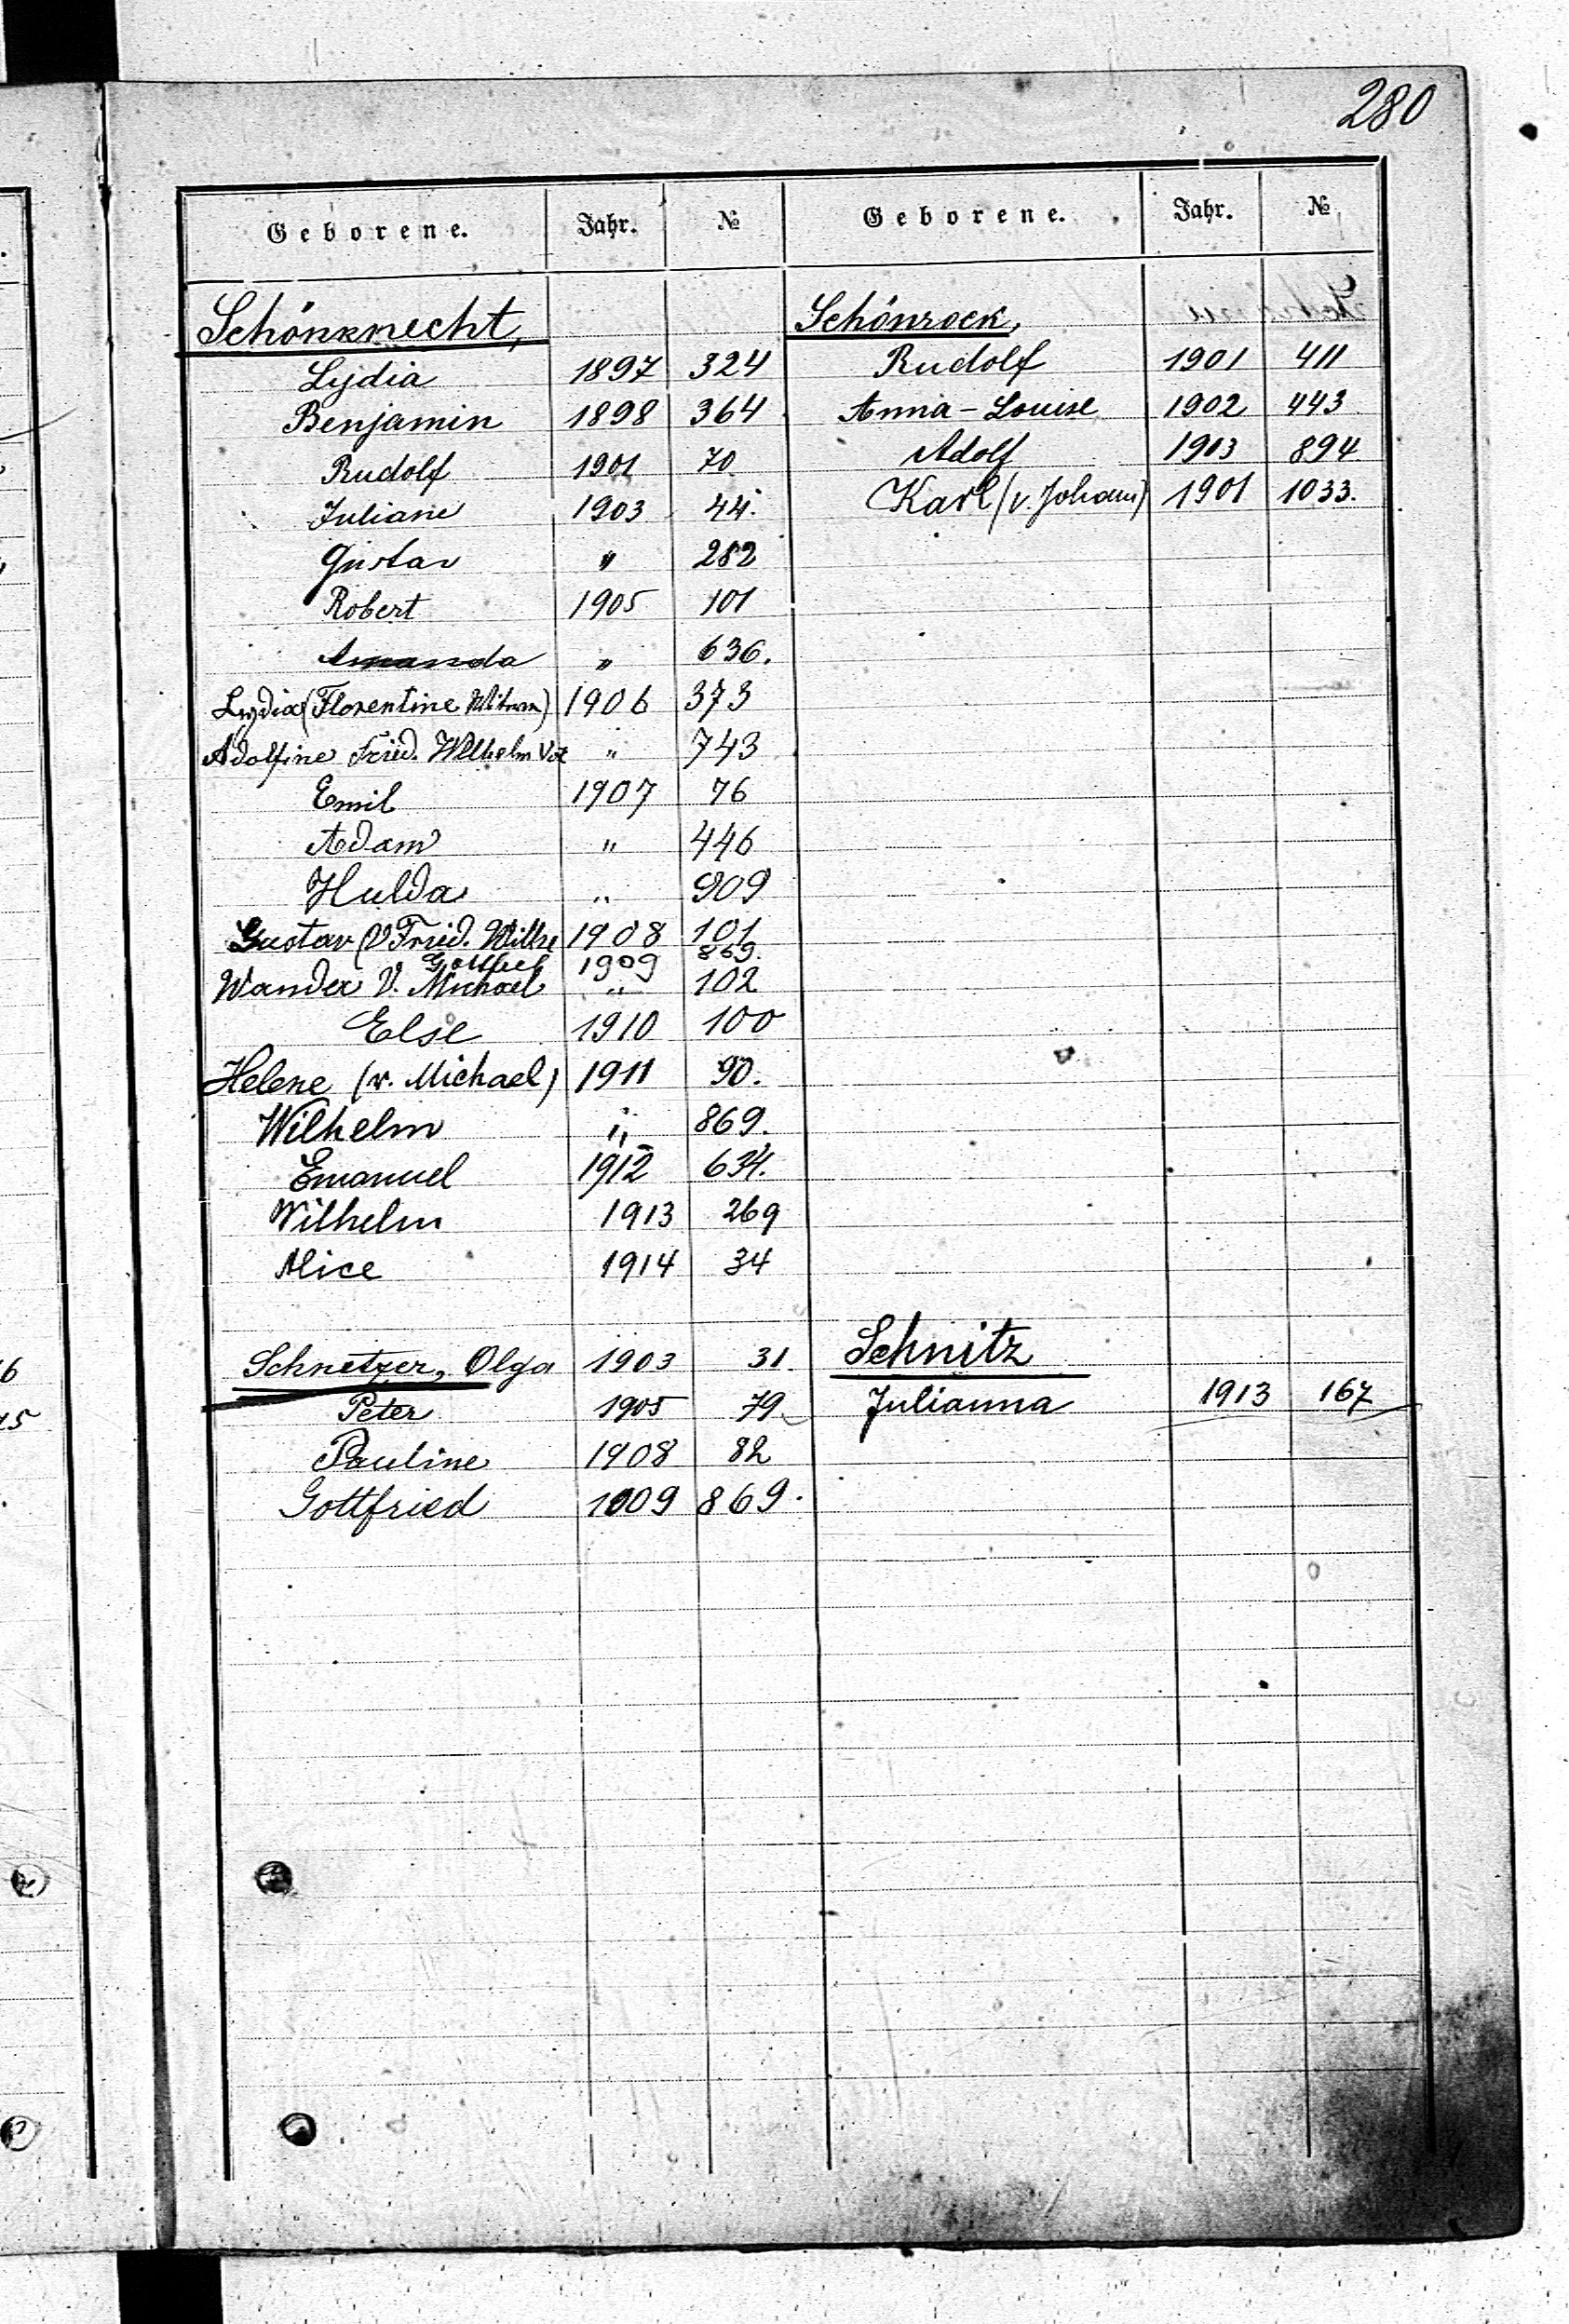 280
Geborene. Jahr. № Geborene. Jahr. №
Schönknecht,
Lydia 1897 324
Benjamin 1898 364
Rudolf 1901 70
Juliane 1903 44.
Gustav " 282
Robert 1905 101
Amanda " 636.
Lydia (Florentine 1906 373
Adolfine Fried. Wilhelm Vat " 743
Emil 1907 76
Adam " 446
Hulda " 909
Gustav (V Fried. 1908 101
1909 869.
Wanda V. Michael " 102
Else 1910 100
Helene (v. Michael) 1911 90.
Wilhelm " 869.
Emanuel 1912 634.
Wilhelm 1913 269
Alice 1914 34
Schnetzer, Olga 1903 31.
Peter 1905 79
Pauline 1908 82
Gottfried 1909 869.
Schönrock,
Rudolf 1901 411
Anna-Louise 1902 443
Adolf 1903 894
Karl (v. Johann) 1901 1033.
Schnitz
Julianna 1913 167
6
45